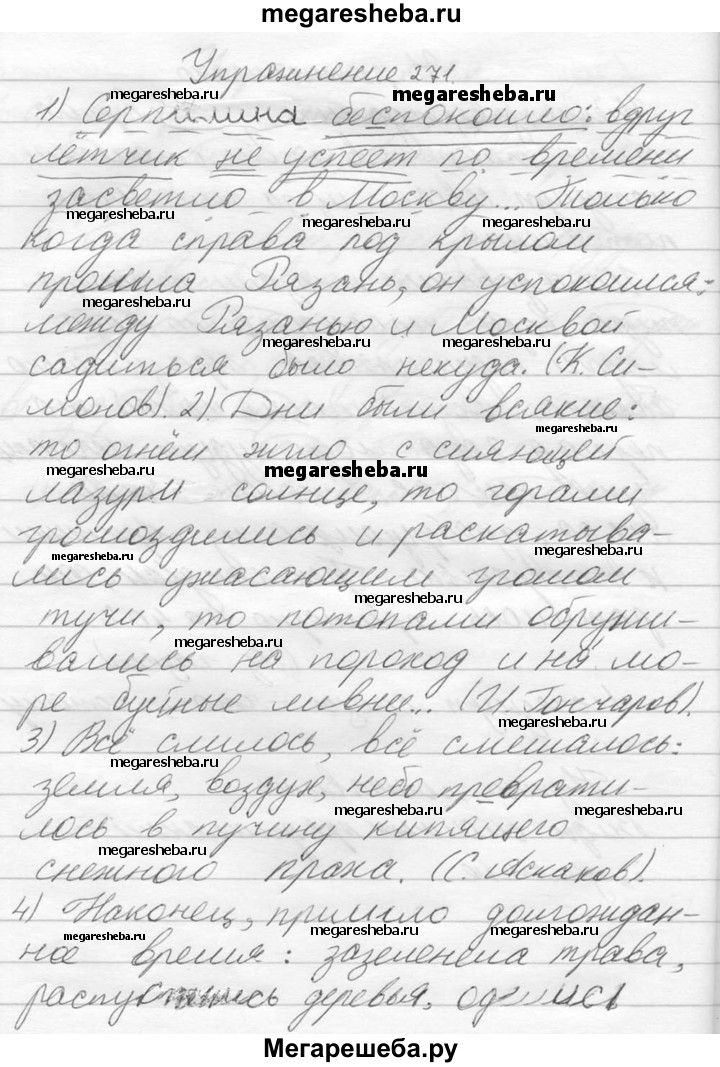 megaresheba.ru
Упражнение 271
megaresheba.ru megaresheba.ru
1) Серпилина беспокоило: вдруг
лётчик не успеет по времени
засветло в Москву... Только
megaresheba.ru megaresheba.ru megaresheba.ru
когда справа под крылом
прошла Рязань, он успокоился:
megaresheba.ru
между Рязанью и Москвой
megaresheba.ru megaresheba.ru
садиться было некуда. (К. Си-
монов). 2) Дни были всякие:
megaresheba.ru
то огнём жгло с сияющей
megaresheba.ru megaresheba.ru
лазури солнце, то горами
громоздились и раскатыва-
megaresheba.ru megaresheba.ru
лись ужасающим громом
megaresheba.ru
тучи, то потопами обруши-
megaresheba.ru
вались на пароход и на мо-
ре буйные ливни... (И. Гончаров).
megaresheba.ru
3) Всё слилось, всё смешалось:
megaresheba.ru
земля, воздух, небо преврати-
megaresheba.ru megaresheba.ru
лось в пучину кипящего
megaresheba.ru
снежного праха. (С. Аскаков).
4) Наконец, пришло долгождан-
megaresheba.ru megaresheba.ru
ное время: зазеленела трава,
распустились деревья,
Мегарешеба.ру